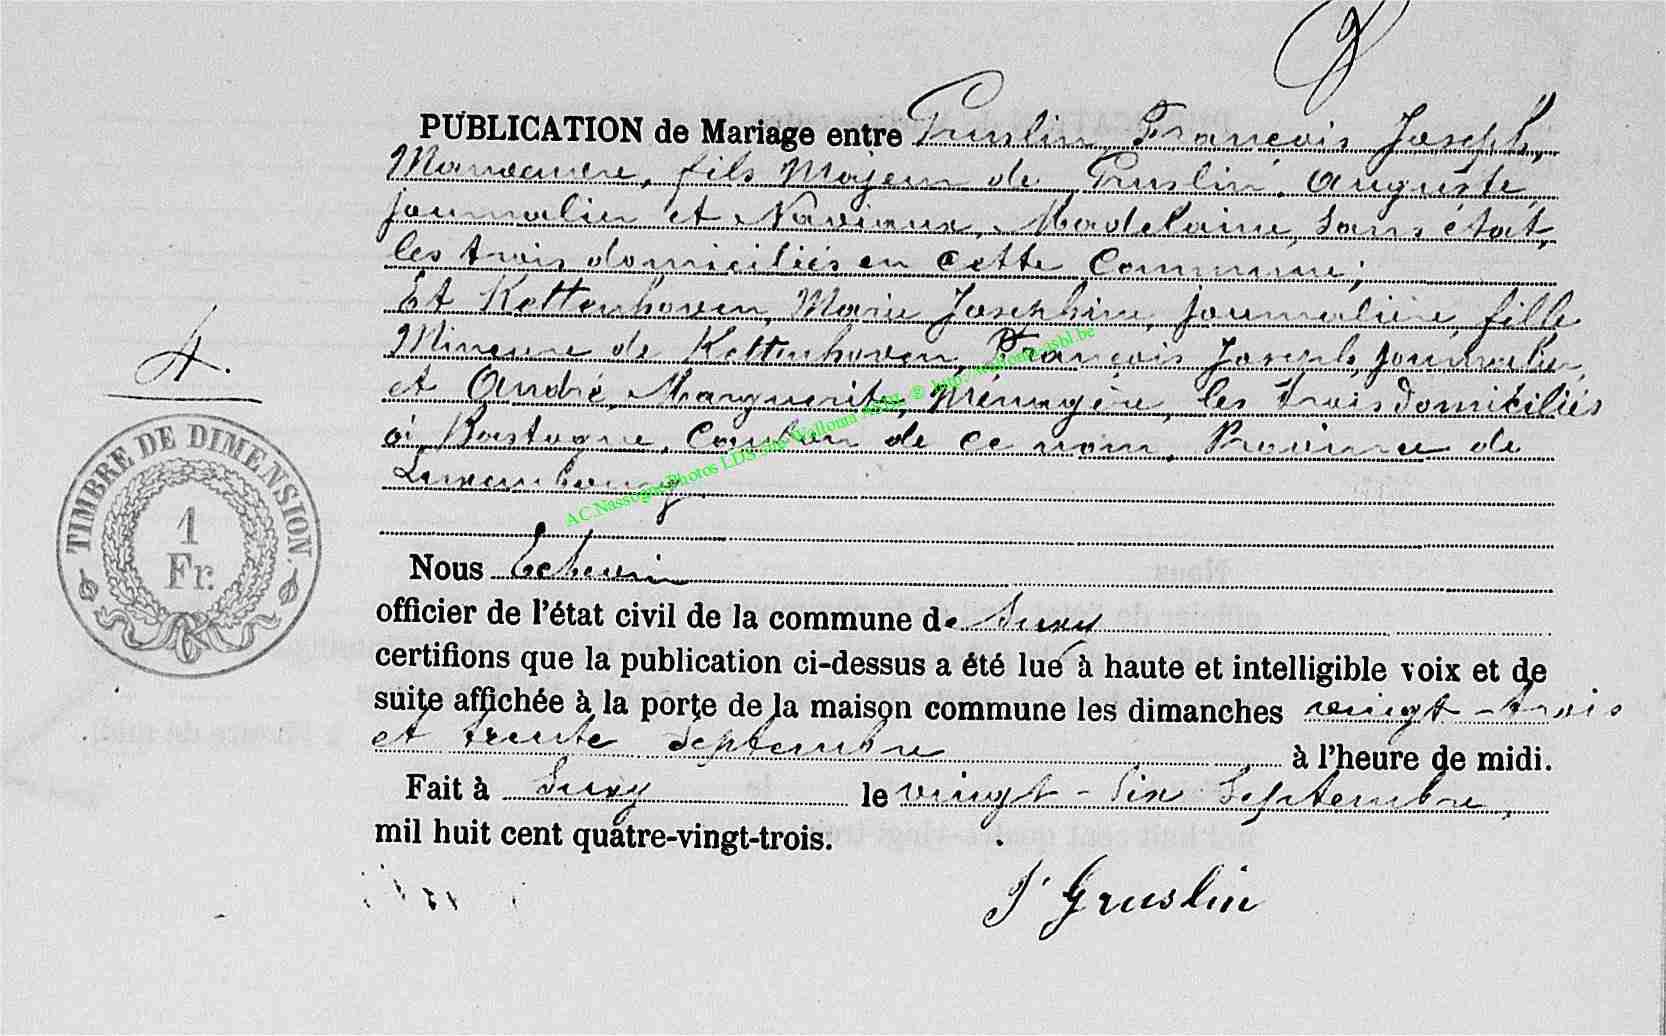 PUBLICATION de Mariage entre Gruslin, François Joseph,
Manoeuvre, fils Majeur de Gruslin, Auguste,
journalier et Naviaux, Madelaine, sans état,
les trois domiciliés en cette Commune;
Et Kettenhoven, Marie Josephine, journalière, fille
Mineure de Kettenhoven, François Joseph, journalier,
et André, Marguerite, Ménagère, les trois domiciliés
à Bastogne, Canton de ce nom, Province de
Luxembourg
4.
TIMBRE DE DIMENSION.
1
Fr.
AC.Nassogne Photos LDS. Wallonia Asbl. © http://wallonia-asbl.be
Nous Echevin
officier de l'état civil de la commune de Suxy
certifions que la publication ci-dessus a été lue à haute et intelligible voix et de
suite affichée à la porte de la maison commune les dimanches vingt-trois
et trente Septembre à l'heure de midi.
Fait à Suxy le vingt-six Septembre,
mil huit cent quatre-vingt-trois.
J Gruslin